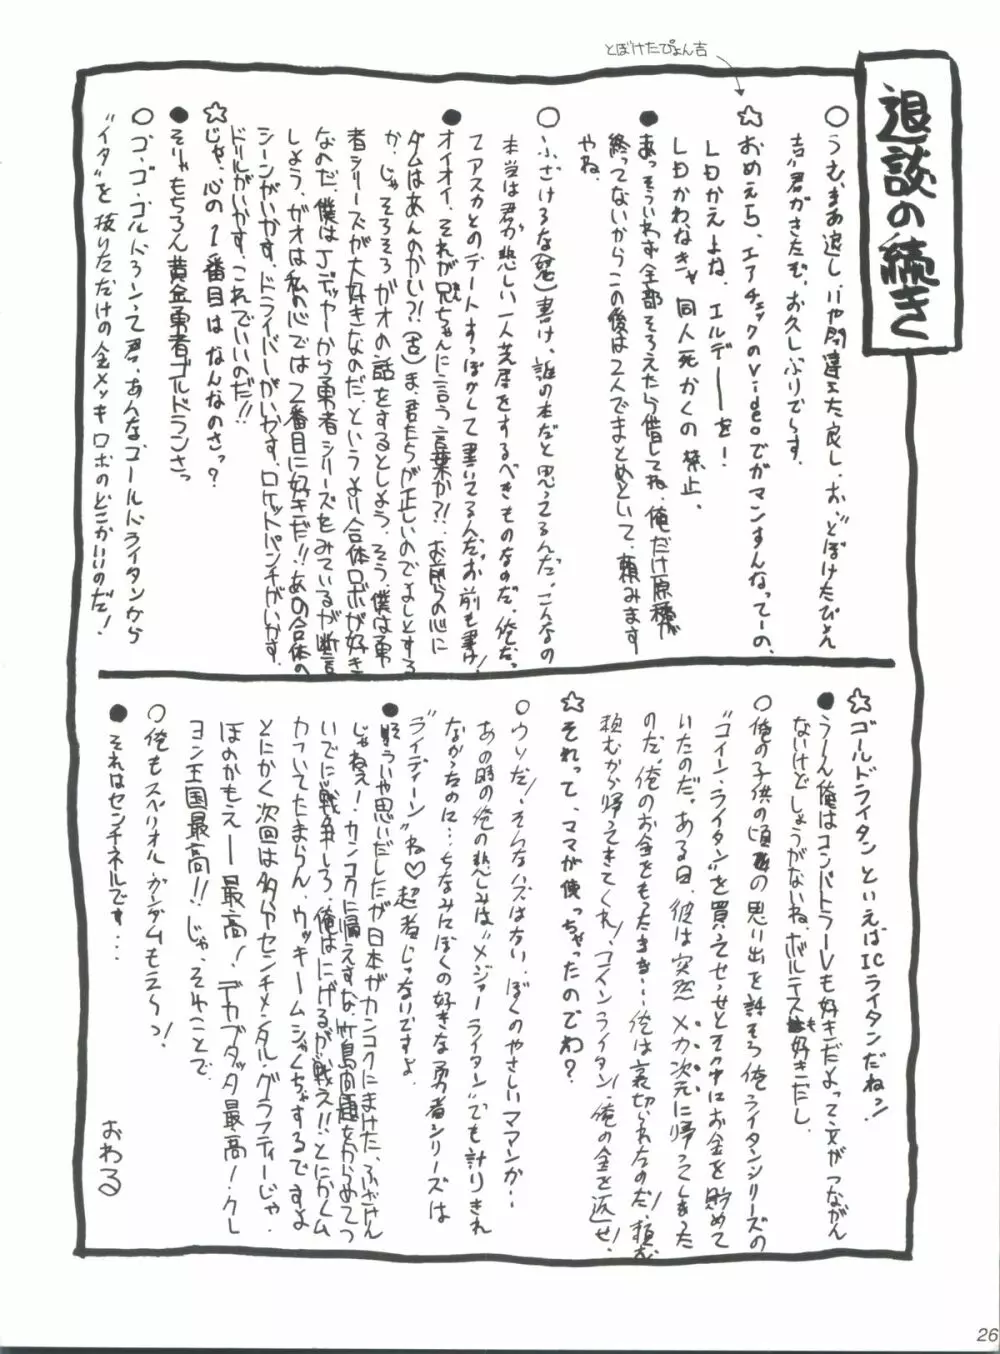 退談の続き
とぼけたぴょん吉
○うむ、まあ退し、いや間違えた、良し。お、"どぼけたぴょん
吉"君がきたむ。お久しぶりでらす。
☆おめえら、エアチェックのVideoでガマンすんなってーの、
LDかえよね、エルデーーを!
LDかわなきゃ同人死かくの禁止。
●あっそういわず全部そろえたら借してね。俺だけ原稿が
終ってないからこの後は2人でまとめといて、頼みます
やね。
○ふざけるな(怒)書け、誰の本だと思ってるんだ。こんなの
本当は君が悲しい一人芝居をするべきものなのだ。俺だっ
てアスカとのデートすっぽかして書いてるんだ。お前も書け!
●オイオイ、それが兄ちゃんに言う言葉か?!お前らの心に
ダムはあんのかい?!(古)ま、君たちが正しいのでよしとする
か。じゃ、そろそろガオの話をするとしよう。そう、僕は勇
者シリーズが大好きなのだ。というより合体ロボが好き
なのだ。僕はJデッカーから勇者シリーズをみているが断言
しよう。ガオは私の心では2番目に好きだ!!あの合体の
シーンがいかす、ドライバーがいかす、ロケットパンチがいかす、
ドリルがいかす、これでいいのだ!!
☆じゃ、心の1番目はなんなのさっ?
●そりゃもちろん黄金勇者ゴルドランさっ
○ゴ・ゴ・ゴルドランって君、あんな、ゴールドライタンから
"イタ"を抜いただけの金メッキロボのどこがいいのだ!
☆ゴールドライタンといえばICライタンだねっ!
●うーん俺はコンバトラーVも好きだよって文がつながん
ないけどしょうがないね、ボルテスも好きだし
○俺の子供の頃の思い出を話そう俺、ライタンシリーズの
"コイン・ライタン"を買ってせっせとその中にお金を貯めて
いたのだ。ある日、彼は突然メカ次元に帰ってしまった
のだ。俺のお金をもったまま…俺は裏切られたのだ!頼む
頼むから帰ってきてくれ!コインライタン!俺の金を返せ!
☆それって、ママが使っちゃったのでわ?
○ウソだ!そんなハズはない、ぼくのやさしいママンが…
あの時の俺の悲しみは"メジャーライタン"でも計りきれ
なかったのに…ちなみにぼくの好きな勇者シリーズは
"ライディーン"ね♡超者じゃないですよ。
●そういや思いだしたが日本がカンコクにまけた、ふざけん
じゃねえ!カンコクに帰えすな、竹島問題をからめてつ
いでに戦争しろ、俺はにげるが戦え!!とにかくム
カツいてたまらん、ウッキームシャくちゃするですよ
とにかく次回は センチメンタル・グラフティーじゃ。
ほのかもえーー最高!、デカブダッタ最高!クレ
ヨン王国最高!!じゃ、それぃことで。
○俺もスペリオル・ガンダムもえーっ!
●それはセンチネルです…
おわる
26